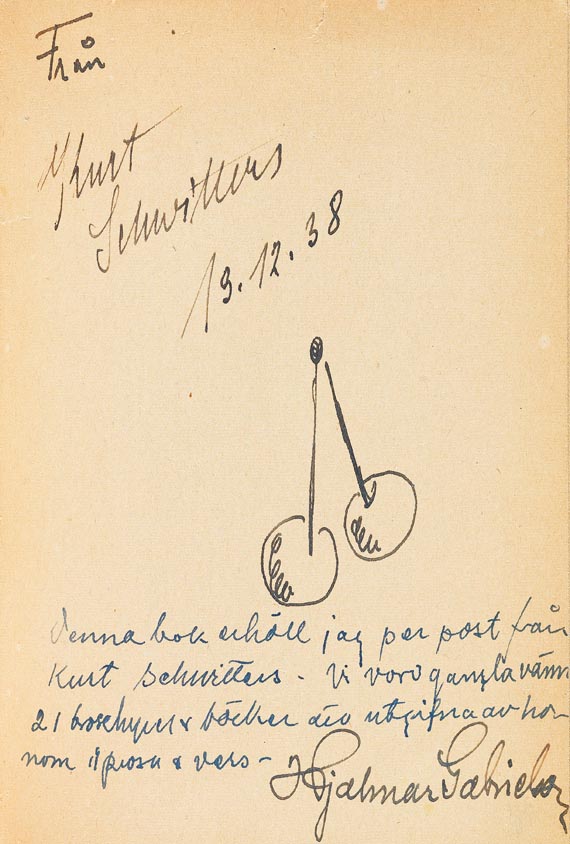 Från
Kurt
Schwitters
19.12.38
Denna bok erhöll jag per post från
Kurt Schwitters - Vi voro gamla vänn
21 broschyrer & böcker äro utgifna av ho-
nom i prosa & vers -
Hjalmar Gabriels